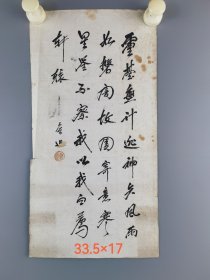 靈臺無計逃神矢風雨
如磐闇故園寄意寒
星荃不察我以我血薦
軒轅
33.5×17